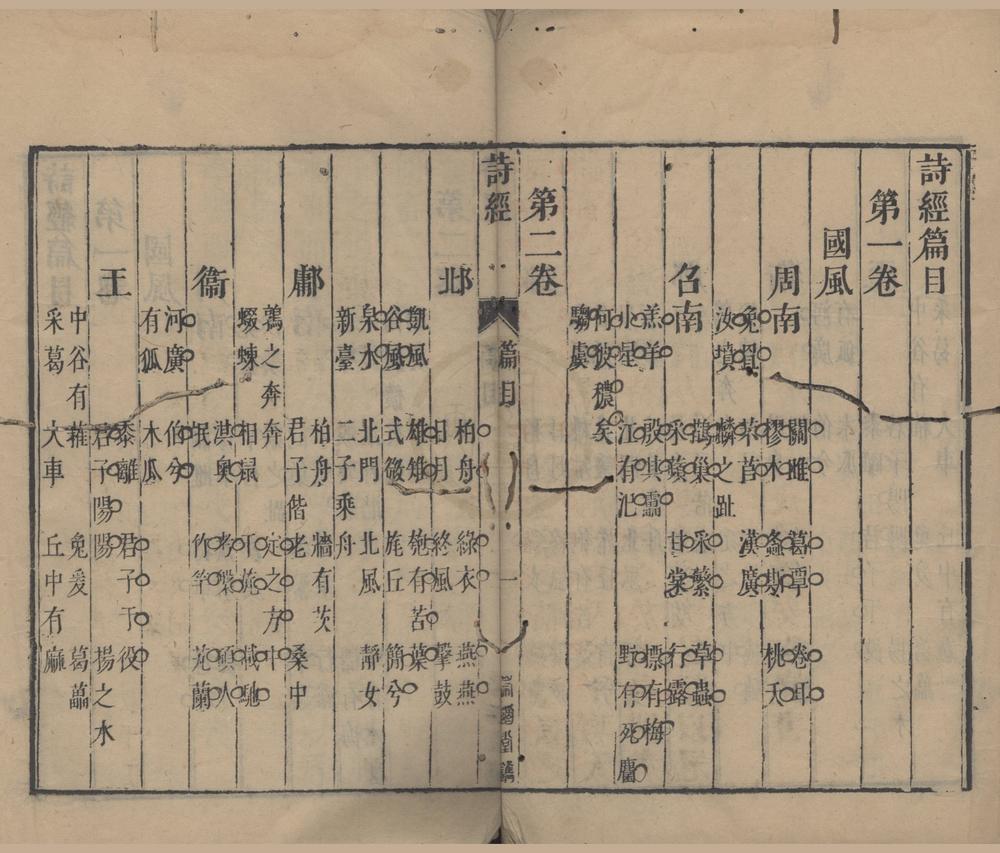 詩經篇目
第一卷
國風
周南 關雎 葛覃 卷耳
樛木 螽斯 桃夭
兔罝 芣苢 漢廣
汝墳 麟之趾
召南 鵲巢 采蘩 草蟲
采蘋 甘棠 行露
羔羊 殷其靁 摽有梅
小星 江有汜 野有死麕
何彼穠矣
騶虞
第二卷
詩經 篇目 一
邶 柏舟 綠衣 燕燕
日月 終風 擊鼓
凱風 雄雉 匏有苦葉
谷風 式微 旄丘 簡兮
泉水 北門 北風 靜女
新臺 二子乘舟
鄘 柏舟 牆有茨
君子偕老 桑中
鶉之奔奔 定之方中
蝃蝀 相鼠 干旄 載馳
衛 淇奧 考槃 碩人
氓 竹竿 芄蘭
河廣 伯兮
有狐 木瓜
王 黍離 君子于役
君子陽陽 揚之水
中谷有蓷 兔爰 葛藟
采葛 大車 丘中有麻